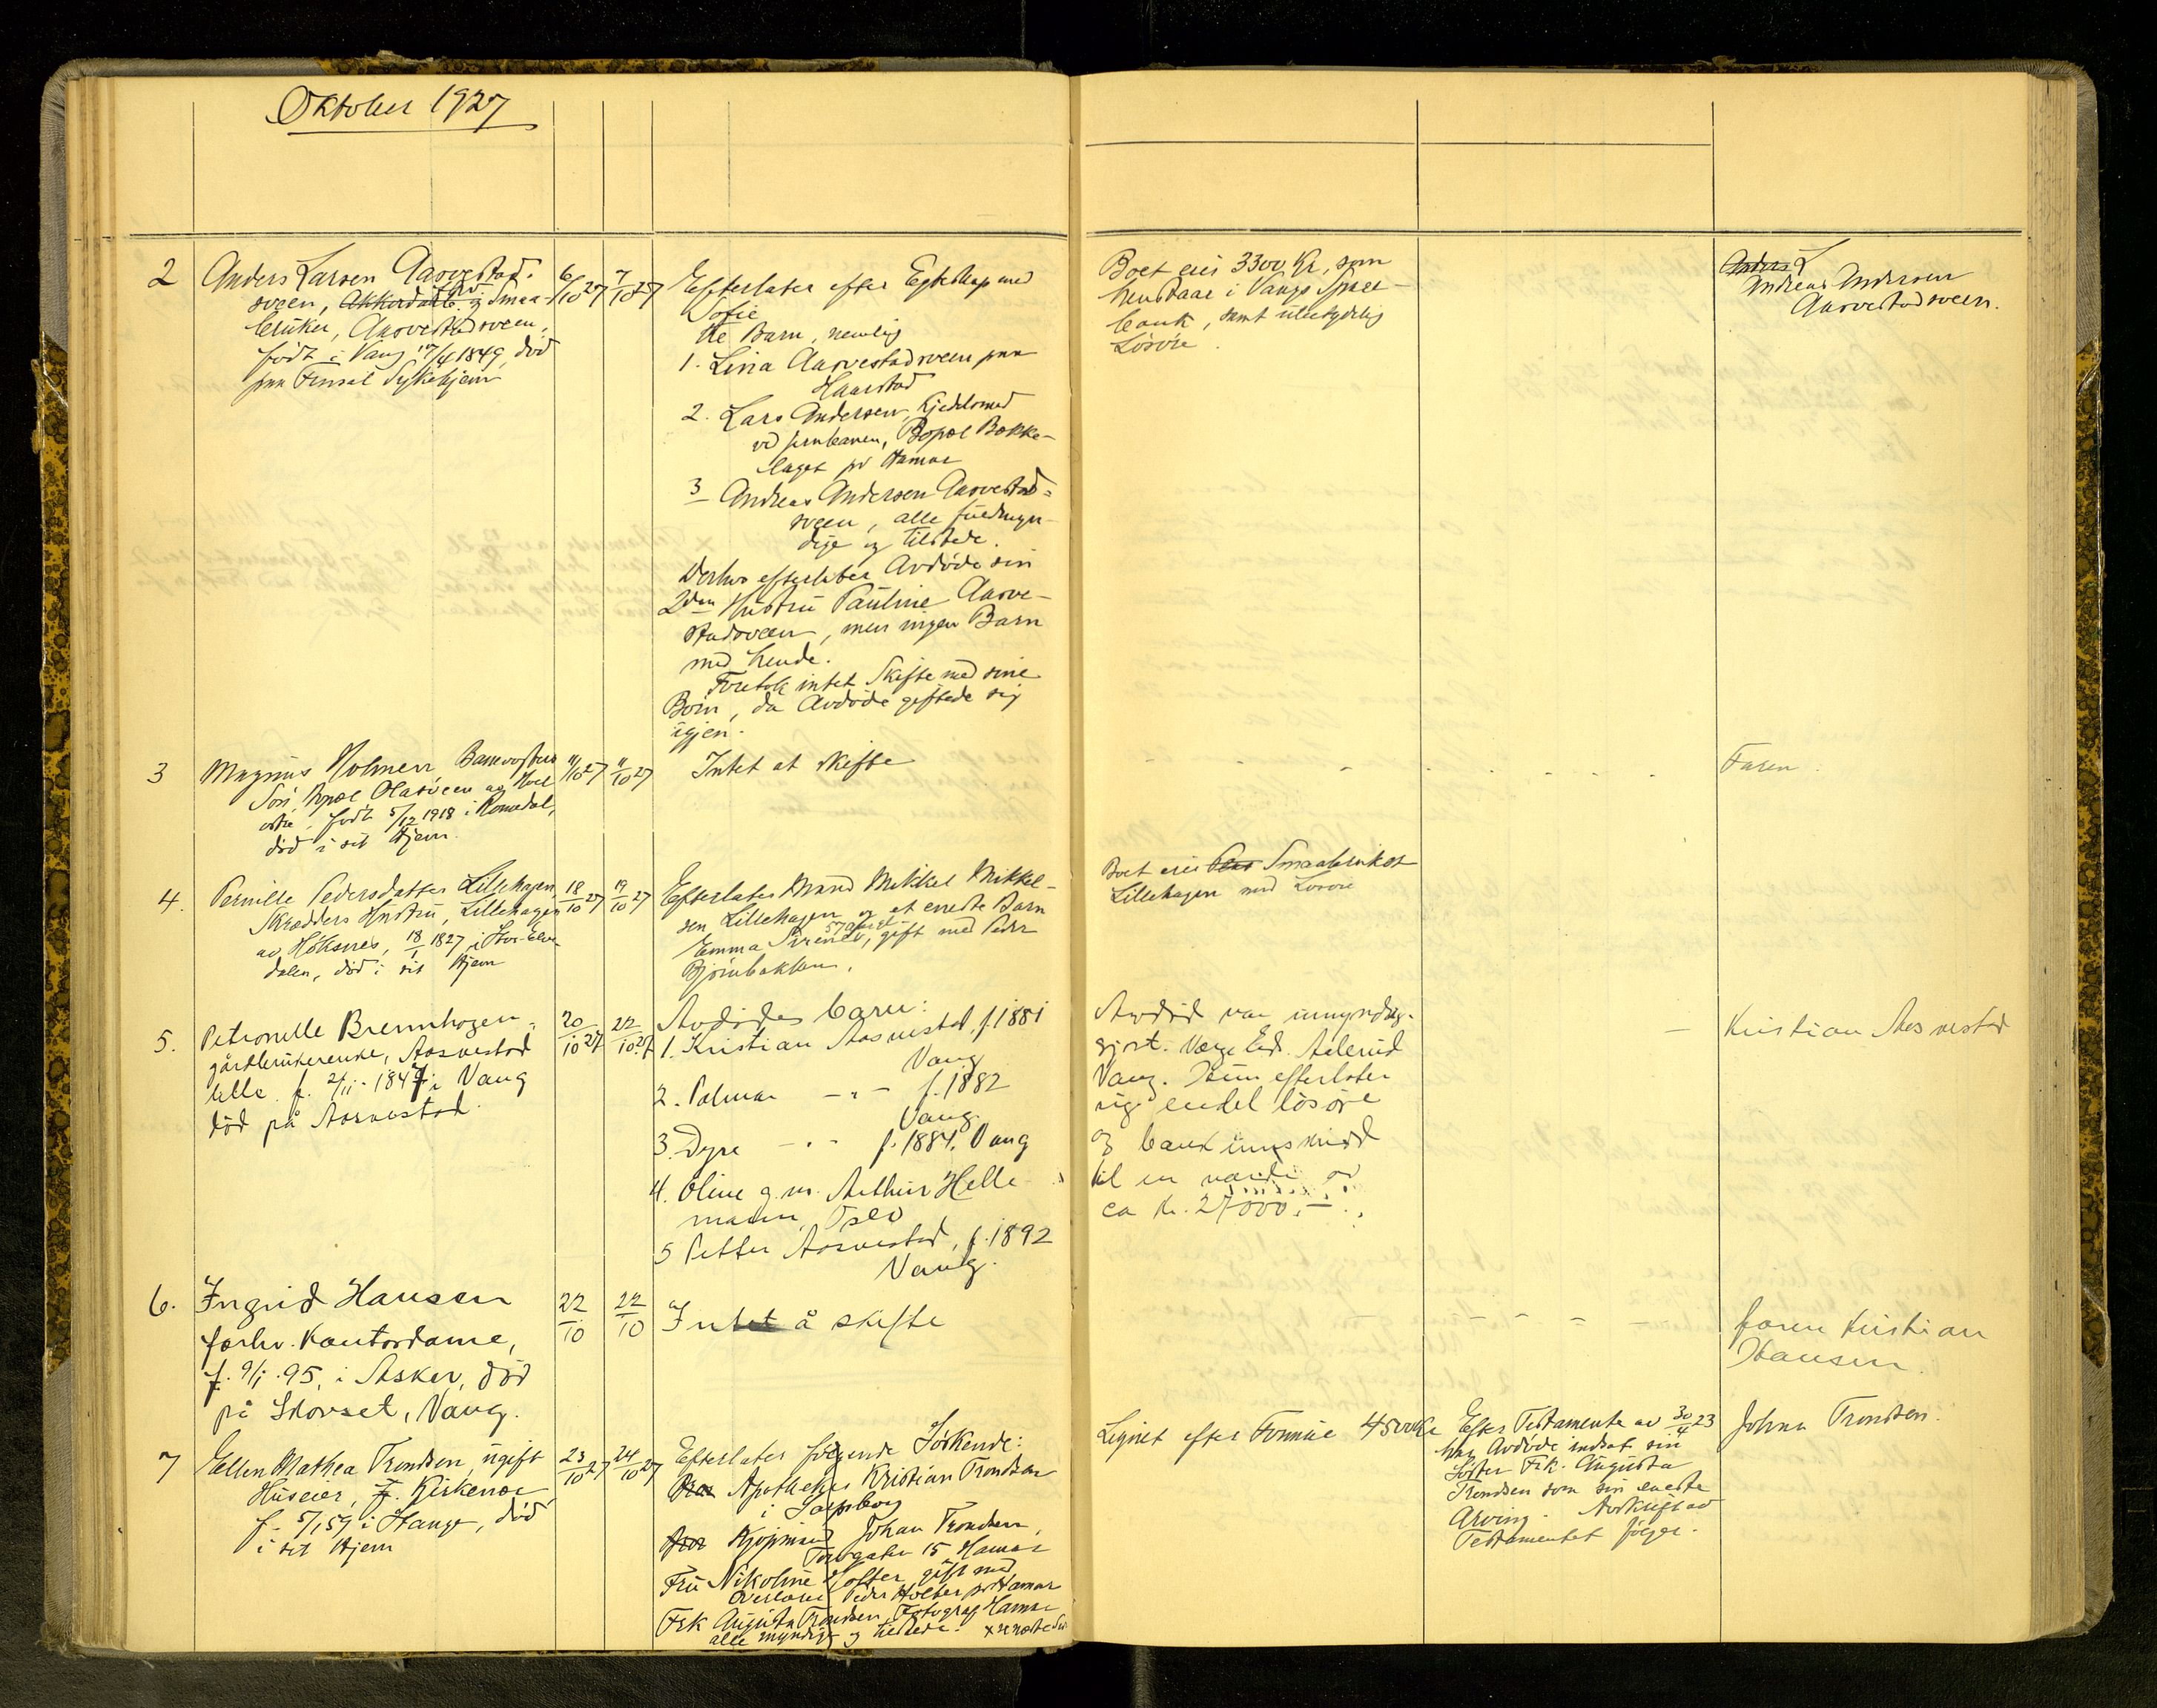 Oktober 1927
2
Anders Larsen Aarvestad-
sveen, og Smaa-
bruker, Aarvestadsveen,
født i Vang 17/4 1849, død
paa Finsal Sykehjem
6/10 27
7/10 27
Efterlater efter Egteskap med
Sofie
tre Barn, nemlig
1. Lina Aarvestadsveen paa
Haarstad
2. Lars Andersen,
ved jernbanen, Bopæl Bække-
laget pr Hamar
3 Andreas Andersen Aarvestad-
sveen, alle fuldmyn-
dige og tilstede.
Derhos efterlater Avdøde sin
2den Hustru Pauline Aarve-
stadsveen, men ingen Barn
med hende.
Foretok intet Skifte med sine
Børn, da Avdøde giftede sig
igjen.
Boet eier 3300 Kr, som
henstaar i Vangs Spare-
bank, samt ubetydelig
Løsøre.
Anders L
Andreas Andersen
Aarvestadsveen.
3
Magnus Holmen,
Søn, Bopæl Olasveen av
østre, født 5/12 1918 i Romedal,
død i sit Hjem.
11/10 27
11/10 27
Intet at skifte
Faren.
4.
Pernille Pedersdatter Lillehagen,
Skrædders Hustru, Lillehagen
av Høksnes, 18/1 1827 i Stor-Elve-
dalen, død i sit Hjem
18/10 27
19/10 27
Efterlater Mand Mikkel Mikkel-
sen Lillehagen og et eneste Barn
57 Aar
Emma, gift med Peder
Bjørnbakken.
Boet eier Smaabruket
Lillehagen med Løsøre
5.
Petronelle Brennhagen,
gårdbrukerenke, Aasvestad
lille f. 2/11-1847 i Vang
død på Aasvestad.
20/10 27
22/10 27
Avdødes barn:
1. Kristian Aasvestad, f. 1881
Vang
2. Palmar - " - f. 1882
Vang.
3. Dyre - " - f. 1884. Vang
4. Oline g.m. Arthur Helle-
mann, Oslo
5 Petter Aasvestad, f. 1892
Vang.
Avdød var umyndig-
gjort. Verge Ed. Aalerud
Vang. Hun efterlater
sig endel løsøre
og bankinnskudd
til en værdi av
ca kr. 27000.-
- Kristian Aasvestad
6.
Ingrid Hansen
forhv. Kontordame,
f. 9/1.95, i Asker, død
på Skovset, Vang.
22/10
22/10
Intet å skifte
- - - -
faren Kristian
Hansen.
7
Ellen Mathea Trondsen, ugift
Huseier, f. Kirkenær
f. 5/1 59 i Stange, død
i sit Hjem
23/10 27
24/10 27
Efterlater følgende Søskende:
Apotheker Kristian Trondsen
i Sarpsborg
Kjøpmand Johan Trondsen,
Torvgaten 15 Hamar
Fru Nikoline Holter, gift med
Overlærer Peder Holter pr Hamar
Frk Augusta Trondsen, Fotograf Hamar
alle myndige og tilstede.
Lignet efter Formue 4500 Kr
Efter Testamente av 30/4 23
har Avdøde indsat sin
Søster Frk. Augusta
Trondsen som sin eneste
Arving. Avskrift av
Testamentet følger.
Johan Trondsen.